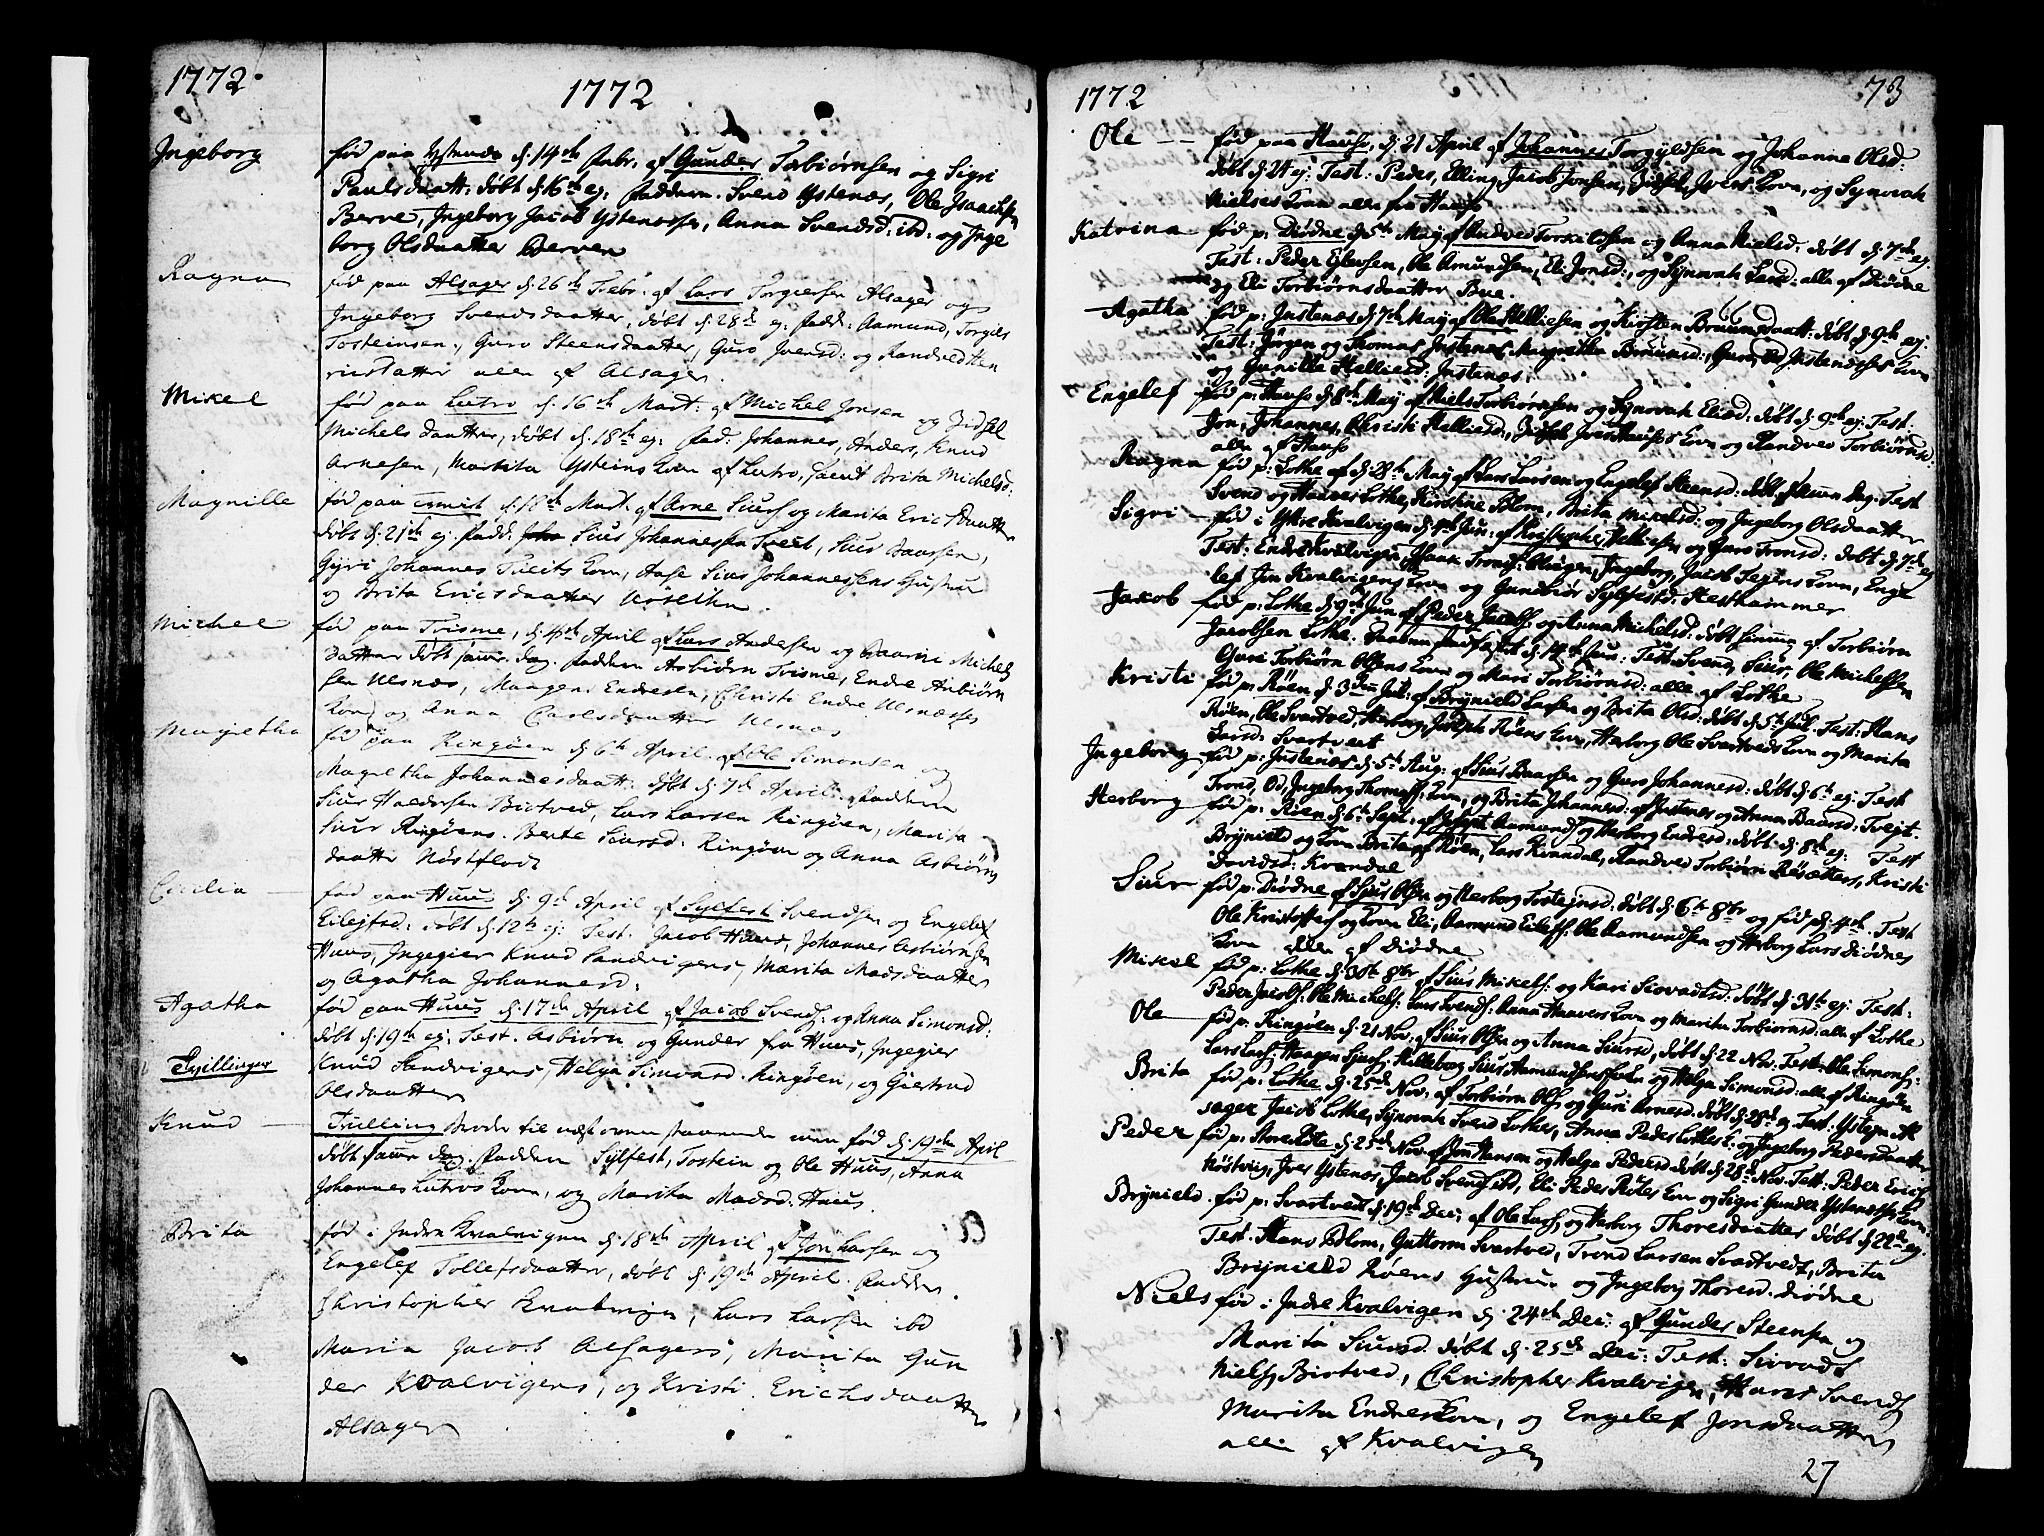 1772
1772
Ingeborg
født paa Ystenæs d. 14de Febr. af Gunder Torbiørnsen og Sigri
Paulsdaatt: døbt d. 16de ej. faddere. Svend Ystenes, Ole Isaachsen
Berve, Ingeborg Jacob Ystenæsses, Anna Svendsd: ibd: og Inge
borg Olsdaatter Berven
Ragna
fød paa Alsager d. 26de Febr. af Lars Torgiersen Alsager og
Ingeborg Svendsdaatter, døbt d. 28de ej. fadd: Aamund, Torgiels
Tosteinsen, Guro Steensdaatter, Guro Iversd: og Randved Hen
ricsdatter alle af Alsager.
Mikel
fød paa Lutro d. 16de Mart: af Michel Jonsen og Zidsel
Michelsdaatter, døbt d. 18de ej: fad: Johannes, Anders, Knud
Arnesen, Maritta Ysteins Kon af Lutro, samt Brita Michelsd:
Magnille
fød paa Tveit d. 18de Mart. af Arne Siurs: og Marita Ericsdaatter
døbt d. 21de ej. fadd: Siur Johannessen Tveit, Siur Baarsen,
Gyri Johannes Tveits Kon, Aase Siur Johannessens Hustru
og Brita Ericsdaatter
Michel
fød paa Trisme, d. 4de April af Lars Andersen og Michels
datter døbt samme dag. faddere Asbiørn Trisme, Endre Anbiørn
sen Ulsnæs, Maagens Endresen, Christi Endre Ulsnæsses
Kon og Anna Carlsdaatter Ulsnæs
Magretha
fød paa Ringøen d. 6te April af Ole Simonsen og
Magretha Johannesdaatt: døbt d. 7de April: faddere
Siur Haldorsen Birtved, Lars Larsen Ringøen, Marita
Siur Ringøens. Berte Siursd: Ringøen og Anna Asbiørns
daatter Nøstflod
Cicilia
fød paa Huus d. 9de April af Sylfest Svendsen og Engelef
Eilefsd: døbt d. 12te ej: Test. Jacob Huus, Johannes Asbiørnsen
Huus, Ingegier Knud Sandvigens, Marita Madsdaatter
og Agatha Johannesd:
Agatha
fød paa Huus d. 17de April af Jacob Svends: og Anna Simonsd:
døbt d. 19de ej: Test. Asbiørn og Gunder fra Huus, Ingegier
Tvillinger
Knud Sandvigens, Helga Simonsd. Ringøen, og Giertrud
Olsdaatter
Knud
Tvilling broder til næst oven staaende men fød d. 19de April
døbt samme dag. faddere Sylfest, Tostein og Ole Huus, Anna
Johannes Lutros Kon, og Marita Madsd: Huus.
Brita
fød i Indre Kvalvigen d. 18de April af Jon Larsen og
Engelef Tollefsdaatter, døbt d. 19de April. faddere.
Christopher Kvalvigen, Lars Larsen ibd
Maria Jacob Alsagers, Marita Gun
der Kvalvigens, og Kristi Erichsdaatter
Alsager
1772
73
Ole
fød paa Hauso, d. 21 April af Johannes Torgyldsen og Johanne Olsd:
døbt d. 24 ej: Test: Peder, Elling, Jacob Jonsen, Zidsel, Ivers Kon, og Synovah
Nielses Kon alle fra Hauso
Katrina
fød p: Diødne d. 5te May af Andved Torkildsen og Anna Nielsd: døbt d. 7de ej:
Test: Peder Ejlersen, Ole Amundsen, Eli Jonsd:, og Synovah Larsd: alle af Diødne
og Eli Torbiørnsdaatter Bue.
Agatha
fød p: Instenæs d. 7de May af Ole Helliesen og Kirsten Bruunsdaatt: døbt d. 9de ej:
Test: Jørgen og Thomas Instenes, Magretha Bruunsd:, Guro, Od Instenæsses Kon
og Gunilla Helliesd: Instenæs.
Engelef
fød p: Hauso d. 8de May af Niels Torbiørnsen og Synovah Elisd: døbt d. 9de ej: Test.
Jon, Johannes, Christi Helliesd:, Zidsel Iver Hauses Kon og Randved Torbiørnsd:
alle af Hauso
Ragna
fød p: Lothe d. 28de May af Lars Larsen og Engelef Steensd: døbt samme dag. Test
Svend og Haaver Lothe, Kirstine Blom, Brita Mikelsd: og Ingeborg Olsdaatter
Sigri
fød i Ystre Kvalvigen d. 4de Jun: af Kristopher Helliesen og Guro Tronsd: døbt d. 7de ej
Test: Endre Kvalvigen, Isaac Trons: Alvigen, Ingeborg, Jacob Tegens Kon, Enge
lef Jon Kvalvigens Kon og Gunebiør Sylfestsd: Hesthammer
Jacob
fød p: Lothe d. 9de Jun: af Peder Jacobs: og Anna Michelsd: døbt hiemme af Torbiørn
Jacobsen Lothe. Daaben stadfæstet d. 14de ejus: Test: Svend, Siur, Ole Michelsen
Guri Torbiørn Olsens Kon og Mari Torbiørnsd: alle af Lothe
Kristi
fød p: Røen d. 3die Jul: af Brynield Larsen og Brita Olsd: døbt d. 5te Jul. Test: Hans
Røen, Ole Svartved, Herborg Joseph Røens Kon, Herborg Ole Svartveds Kon og Marita
Larsd: Svartveit
Ingeborg
fød p: Instenæs d. 5te Aug: af Siur Baarsen og Guro Johannesd: døbt d. 6te ej: Test
Trond, Od, Ingeborg Thomas: Kon, og Brita Johannesd: af Instenæs og Anna Baarsd: Tvejt.
Herborg
fød p: Røen d. 6te Sept: af Joseph Aamunds: og Herborg Endresd: døbt d. 8de ej: Test
Brynield og Kon Brita af Røen, Lars Kvandal, Randved Torbiørn Røsætters, Kristi
Davidsd: Kvandal
Siur
fød p: Diødne af Siur Olsen og Herborg Tostejnsd: døbt d. 6te 8br og fød d. 4de. Test
Ole Kristoffers: og Kon Eli, Aamund Eilefs: Ole Aamundsen og Herborg Lars Diødnes
Kon alle af Diødne
Mikel
fød p: Lothe d. 30te 8br af Siur Mikels: og Kari Siovadsd: døbt d. 31te ej: Test:
Peder Jacobs: Ole Michels: Lars Svends: Anna Haavers Kon og Marita Torbiørnsd: alle af Lothe
Ole
fød p: Ringøen d. 21 Nov: af Siur Olsen og Anna Siursd, døbt d. 22 Nov: Test: Ole Simons:
Lars Lars: Haagen Siurs: Helleborg Siur Aamundsens Kon og Helga Simonsd: alle af Ringøen
Brita
fød p: Lothe d. 25de Nov: af Torbiørn Ols: og Guri Arnesd: døbt d. 28de ej Test: Ystejn Al
sager Jacob Lothe, Synovah Svend Lothes, Anna Peder Lothes: og Ingeborg Pedersdaatter
Peder
fød p: Storeriste d. 25de Nov. af Jon Hansen og Helga Pedersd døbt d. 28de Nov. Test: Peder Erics:
Nøstvig, Iver Ystenæs, Jacob Svends: ibd, Eli Peder Ristes Kon og Sigri Gunder Ystenæsses Kon.
Brynield
fød p: Svartvedt d. 19de Dec: af Ole Lars: og Herborg Thoresdaatter døbt d. 22de ej:
Test. Hans Blom, Guttorm Svartved, Trond Larsen Svartvedt, Brita
Brynield Røens Hustrue og Ingeborg Thoresd: Diødne
Niels
fød i Indre Kvalvigen d. 24de Dec: af Gunder Steensen og
Marita Siursd. døbt d. 25de Dec: Test: Siovadt
Niels: Birtved, Christopher Kvalvigen, Haaver Svends:
Marita Endres Kon, og Engelef Jonsdaatter
alle af Kvalvigen
27